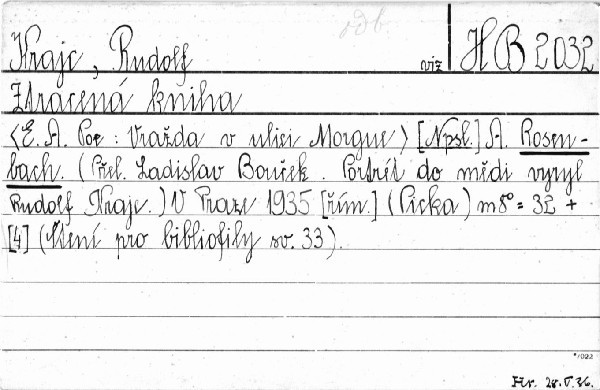 odb.
Krajc, Rudolf viz HB 2032
Ztracená kniha
<E. A. Poe : Vražda v ulici Morgue> [Npsl.] A. Rosen-
bach. (Přel. Ladislav Bouček. Portrét do mědi vyryl
Rudolf Krajc.) V Praze 1935 [řím.] (Picka) m8° = 32 +
[4] (Čtení pro bibliofily sv. 33).
*/022
Hr. 28.V.36.